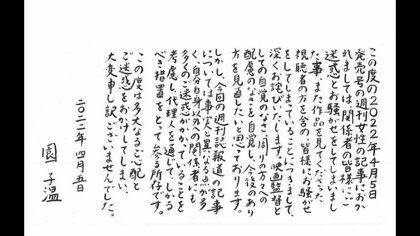 この度の2022年4月5日
発売号の週刊女性の記事におか
れましては、関係者の皆様にご
迷惑とお騒がせをしてしまいまし
た事、また作品を見てくださった
視聴者の方を含め皆様にお騒がせ
をしてしまっていることにつきまして、
深くお詫びいたします。映画監督と
しての自覚のなさ、周りの方々への
配慮のなさを自覚し、今後のあり
方を見直したいと思っております。
しかし、今回の週刊誌報道の記事
については事実と異なる点が多
く、自分自身以外の関係者にも
多くのご迷惑がかかっていることを
考慮し、代理人を通じて、しかる
べき措置をとって参る所存です。
この度は多大なるご心配と
ご迷惑をおかけしてしまい、
大変申し訳ございませんでした。
二〇二二年四月五日
園子温